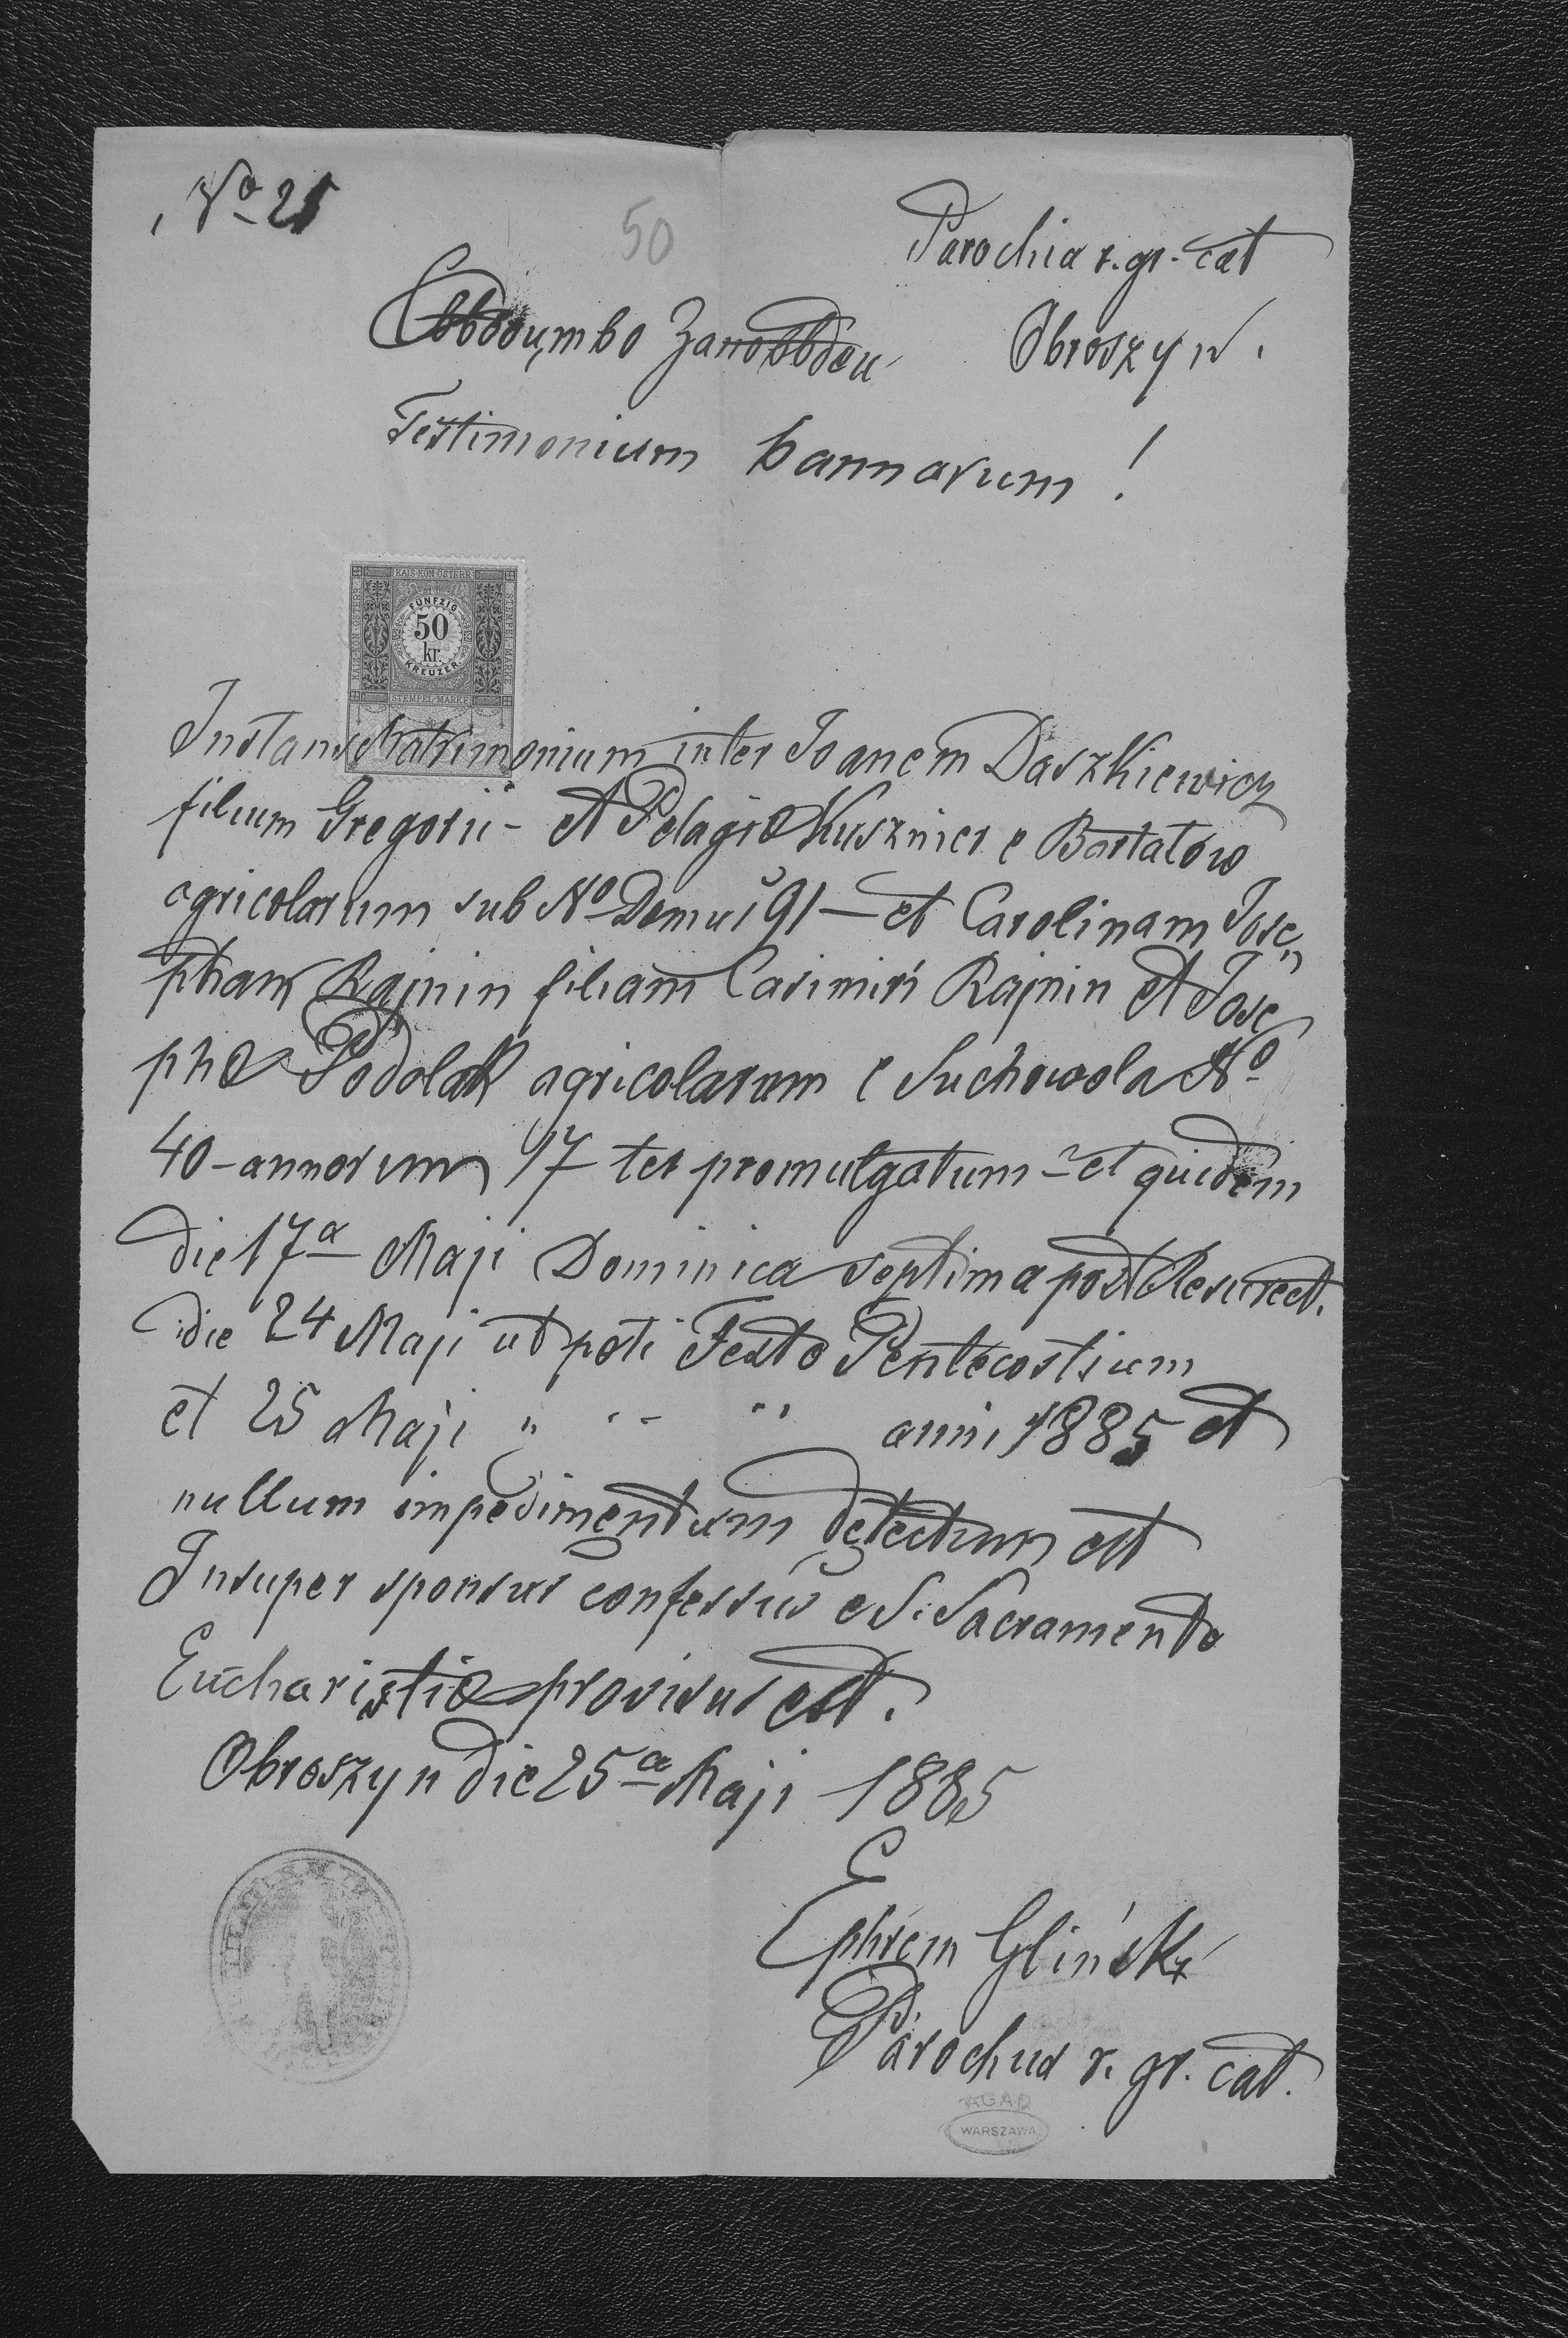 No 25
50
Parochia r. gr. cat
Obroszyn.
Testimonium bannarum!
KAIS. KÖN. ÖSTERR.
FÜNFZIG
50
kr.
KREUZER
STEMPEL-MARKE
Instans Matrimonium inter Joanem Daszkiewicz
filium Gregorii - et Pelagiæ Kusznier e Bartatów
agricolarum sub No Domus 91 - et Carolinam Jose„
pham Rajnin filiam Casimiri Rajnin et Jose
phæ Podolak agricolarum e Suchowola No
40 - annorum 17 ter promulgatum - et quidem
die 17a Maji Dominica septima post Resurect.
die 24 Maji ut poti Festo Pentecostium
et 25 Maji " " " anni 1885 et
nullum impedimentum detectum est
Insuper sponsus confessus e S. Sacramento
Euchariztiæ provisus est.
Obroszyn die 25a Maji 1885
Ephrem Gliński
Parochus r. gr. cat.
AGAD
WARSZAWA